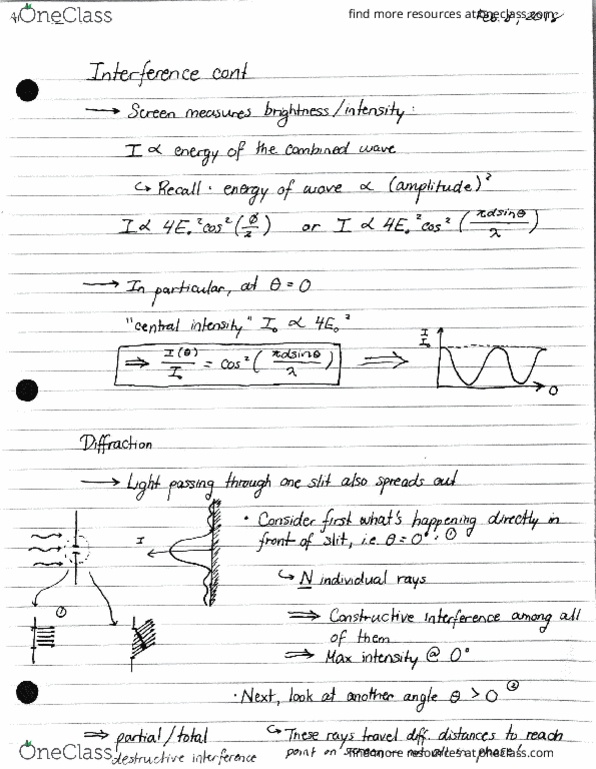 OneClass
find more resources at oneclass.com
Interference cont
→ Screen measures brightness/intensity:
I ∝ energy of the combined wave
↳ Recall · energy of wave ∝ (amplitude)²
I ∝ 4E₀²cos²(ø/2) or I ∝ 4E₀²cos²(πdsinθ/λ)
→ In particular, at θ = 0
"central intensity" I₀ ∝ 4E₀²
⇒ I(θ)/I₀ = cos²(πdsinθ/λ) ⇒
I/I₀
θ
Diffraction
→ Light passing through one slit also spreads out
• Consider first what's happening directly in
front of slit, i.e. θ = 0° : ①
I
↳ N individual rays
①
⇒ Constructive interference among all
of them
⇒ Max intensity @ 0°
• Next, look at another angle θ > 0 ②
⇒ partial/total
destructive interference
↳ These rays travel diff. distances to reach
point on screen
OneClass
find more resources at oneclass.com